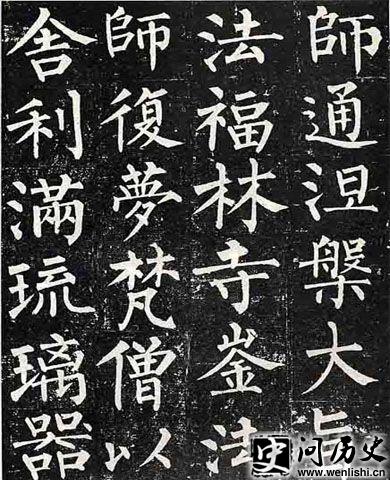 師通涅槃大旨
法福林寺崟法
師復夢梵僧以
舍利滿琉璃器
问历史
www.wenlishi.cn